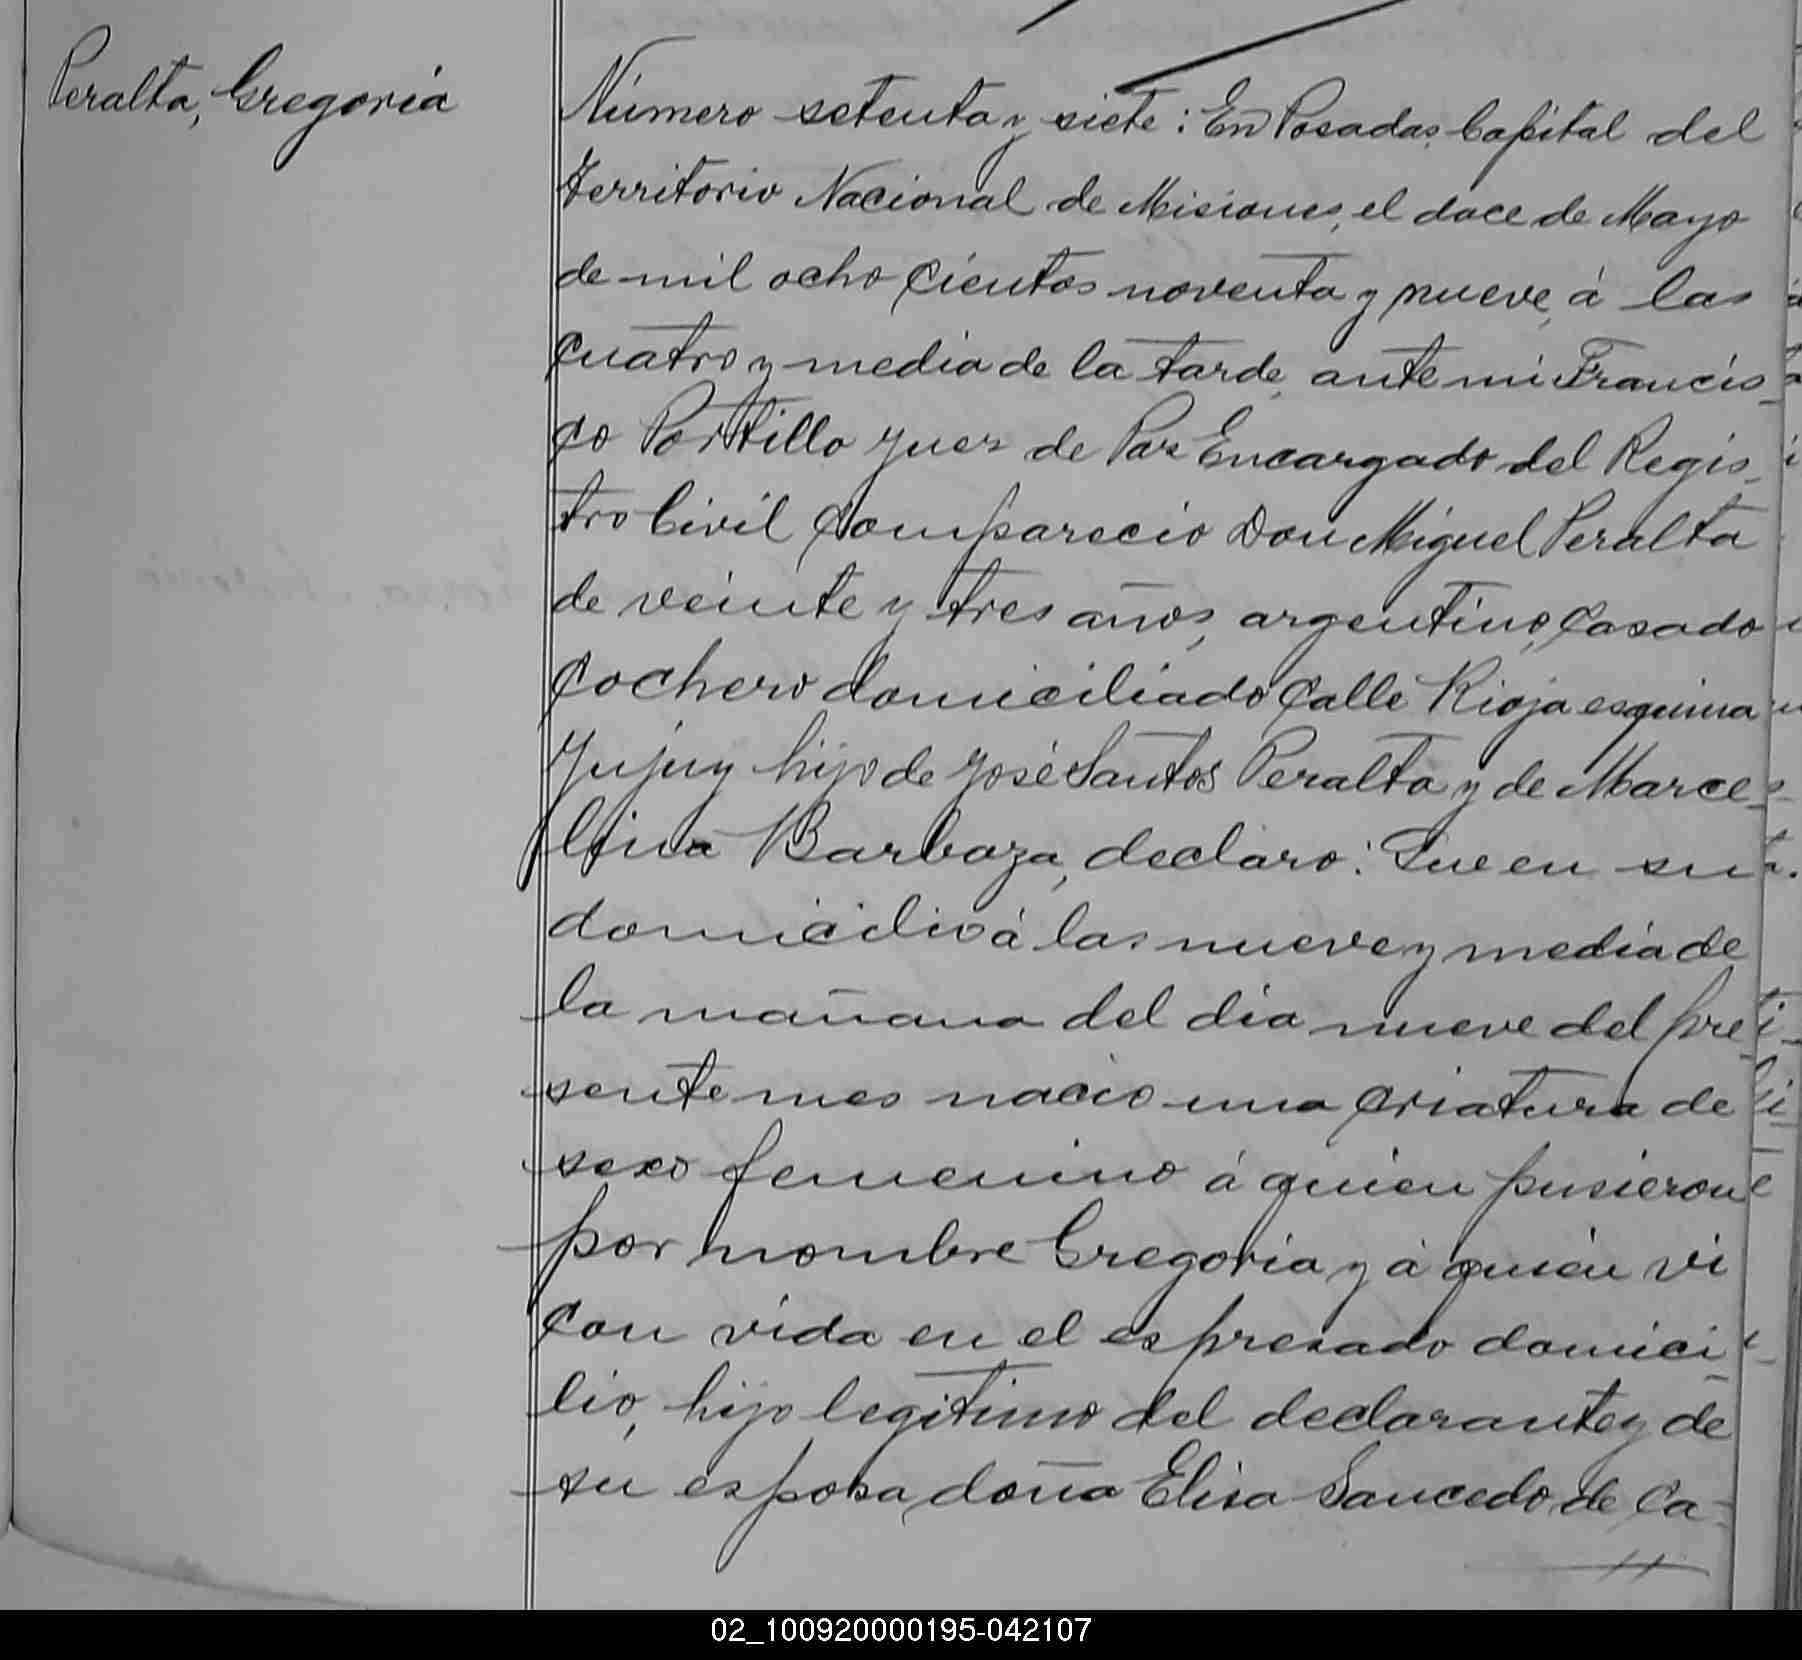 Peralta, Gregoria
Número setenta y siete: En Posadas, Capital del
Territorio Nacional de Misiones, el doce de Mayo
de mil ocho cientos noventa y nueve, á las
cuatro y media de la tarde, ante mi Francis-
co Portillo Juez de Paz Encargado del Regis-
tro Civil compareció Don Miguel Peralta
de veinte y tres años, argentino, casado
cochero domiciliado calle Rioja esquina
Jujuy hijo de José Santos Peralta y de Marce-
lina Barboza, declaro: Que en su
domicilio á las nueve y media de
la mañana del dia nueve del pre-
sente mes nacio una criatura de
sexo femenino á quien pusieron
por nombre Gregoria y á quien vi
con vida en el espresado domici-
lio, hijo legitimo del declarante y de
su esposa, doña Elisa Saucedo, de ca-
02_100920000195-042107